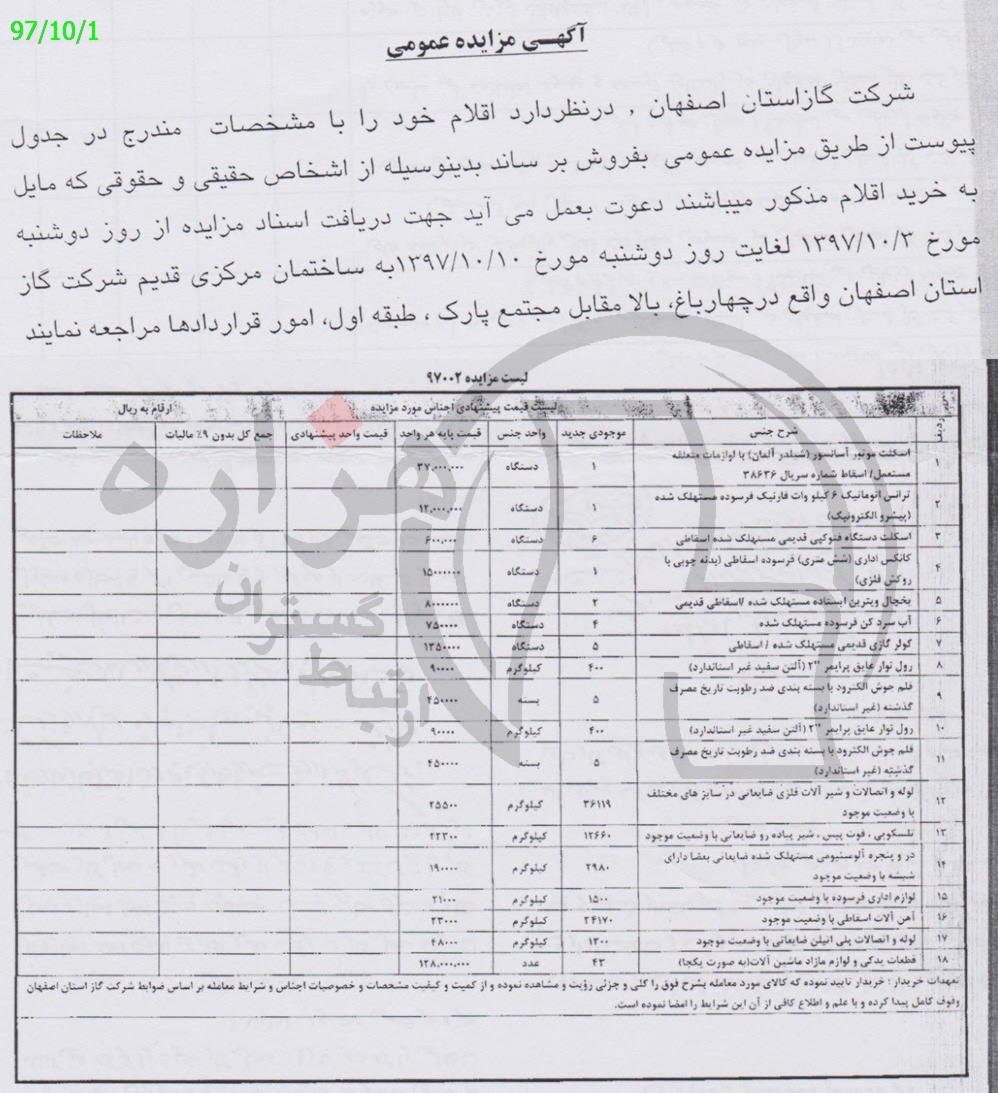 97/10/1
آگهی مزایده عمومی
شرکت گازاستان اصفهان , درنظردارد اقلام خود را با مشخصات مندرج در جدول
پیوست از طریق مزایده عمومی بفروش بر ساند بدینوسیله از اشخاص حقیقی و حقوقی که مایل
به خرید اقلام مذکور میباشند دعوت بعمل می آید جهت دریافت اسناد مزایده از روز دوشنبه
مورخ ۱۳۹۷/۱۰/۳ لغایت روز دوشنبه مورخ ۱۳۹۷/۱۰/۱۰به ساختمان مرکزی قدیم شرکت گاز
استان اصفهان واقع درچهارباغ، بالا مقابل مجتمع پارک ، طبقه اول، امور قراردادها مراجعه نمایند
لیست مزایده ۹۷۰۰۲
لیست قیمت پیشنهادی اجناس مورد مزایده ارقام به ریال
ردیف شرح جنس موجودی جدید واحد جنس قیمت پایه هر واحد قیمت واحد پیشنهادی جمع کل بدون ۹٪ مالیات ملاحظات
۱ اسکلت موتور آسانسور (شیلدر آلمان) با لوازمات متعلقه ۱ دستگاه ۳۷,۰۰۰,۰۰۰
مستعمل/ اسقاط شماره سریال ۳۸۶۳۶
۲ ترانس اتوماتیک ۶ کیلو وات فارتیک فرسوده مستهلک شده ۱ دستگاه ۱۲,۰۰۰,۰۰۰
(پیشرو الکترونیک)
۳ اسکلت دستگاه فتوکپی قدیمی مستهلک شده اسقاطی ۶ دستگاه ۶۰۰,۰۰۰
۴ کانکس اداری (شش متری) فرسوده اسقاطی (بدنه چوبی با ۱ دستگاه ۱۵۰۰۰۰۰۰
روکش فلزی)
۵ یخچال ویترین ایستاده مستهلک شده /اسقاطی قدیمی ۲ دستگاه ۸۰۰۰۰۰۰
۶ آب سرد کن فرسوده مستهلک شده ۴ دستگاه ۷۵۰۰۰۰
۷ کولر گازی قدیمی مستهلک شده / اسقاطی ۵ دستگاه ۱۳۵۰۰۰۰
۸ رول نوار عایق پرایمر "۲ (آلتن سفید غیر استاندارد) ۴۰۰ کیلوگرم ۹۰۰۰۰
۹ قلم جوش الکترود با بسته بندی ضد رطوبت تاریخ مصرف ۵ بسته ۴۵۰۰۰۰
گذشته (غیر استاندارد)
۱۰ رول نوار عایق پرایمر "۲ (آلتن سفید غیر استاندارد) ۴۰۰ کیلوگرم ۹۰۰۰۰
۱۱ قلم جوش الکترود با بسته بندی ضد رطوبت تاریخ مصرف ۵ بسته ۴۵۰۰۰۰
گذشته (غیر استاندارد)
۱۲ لوله و اتصالات و شیر آلات فلزی ضایعاتی در سایز های مختلف ۳۶۱۱۹ کیلوگرم ۲۵۵۰۰
با وضعیت موجود
۱۳ تلسکوپی ، فوت پیس ، شیر پیاده رو ضایعاتی با وضعیت موجود ۱۲۶۶۰ کیلوگرم ۲۲۳۰۰
۱۴ در و پنجره آلومینیومی مستهلک شده ضایعاتی بعضا دارای ۲۹۸۰ کیلوگرم ۱۹۰۰۰۰
شیشه با وضعیت موجود
۱۵ لوازم اداری فرسوده با وضعیت موجود ۱۵۰۰ کیلوگرم ۲۱۰۰۰
۱۶ آهن آلات اسقاطی با وضعیت موجود ۲۴۱۷۰ کیلوگرم ۲۳۰۰۰
۱۷ لوله و اتصالات پلی اتیلن ضایعاتی با وضعیت موجود ۱۳۰۰ کیلوگرم ۴۸۰۰۰
۱۸ قطعات یدکی و لوازم مازاد ماشین آلات(به صورت یکجا) ۴۳ عدد ۱۲۸,۰۰۰,۰۰۰
تعهدات خریدار : خریدار تایید نموده که کالای مورد معامله بشرح فوق را کلی و جزئی رؤیت و مشاهده نموده و از کمیت و کیفیت مشخصات و خصوصیات اجناس و شرایط معامله بر اساس ضوابط شرکت گاز استان اصفهان
وقوف کامل پیدا کرده و با علم و اطلاع کافی از آن این شرایط را امضا نموده است.
هزاره
گستران
ارتباط